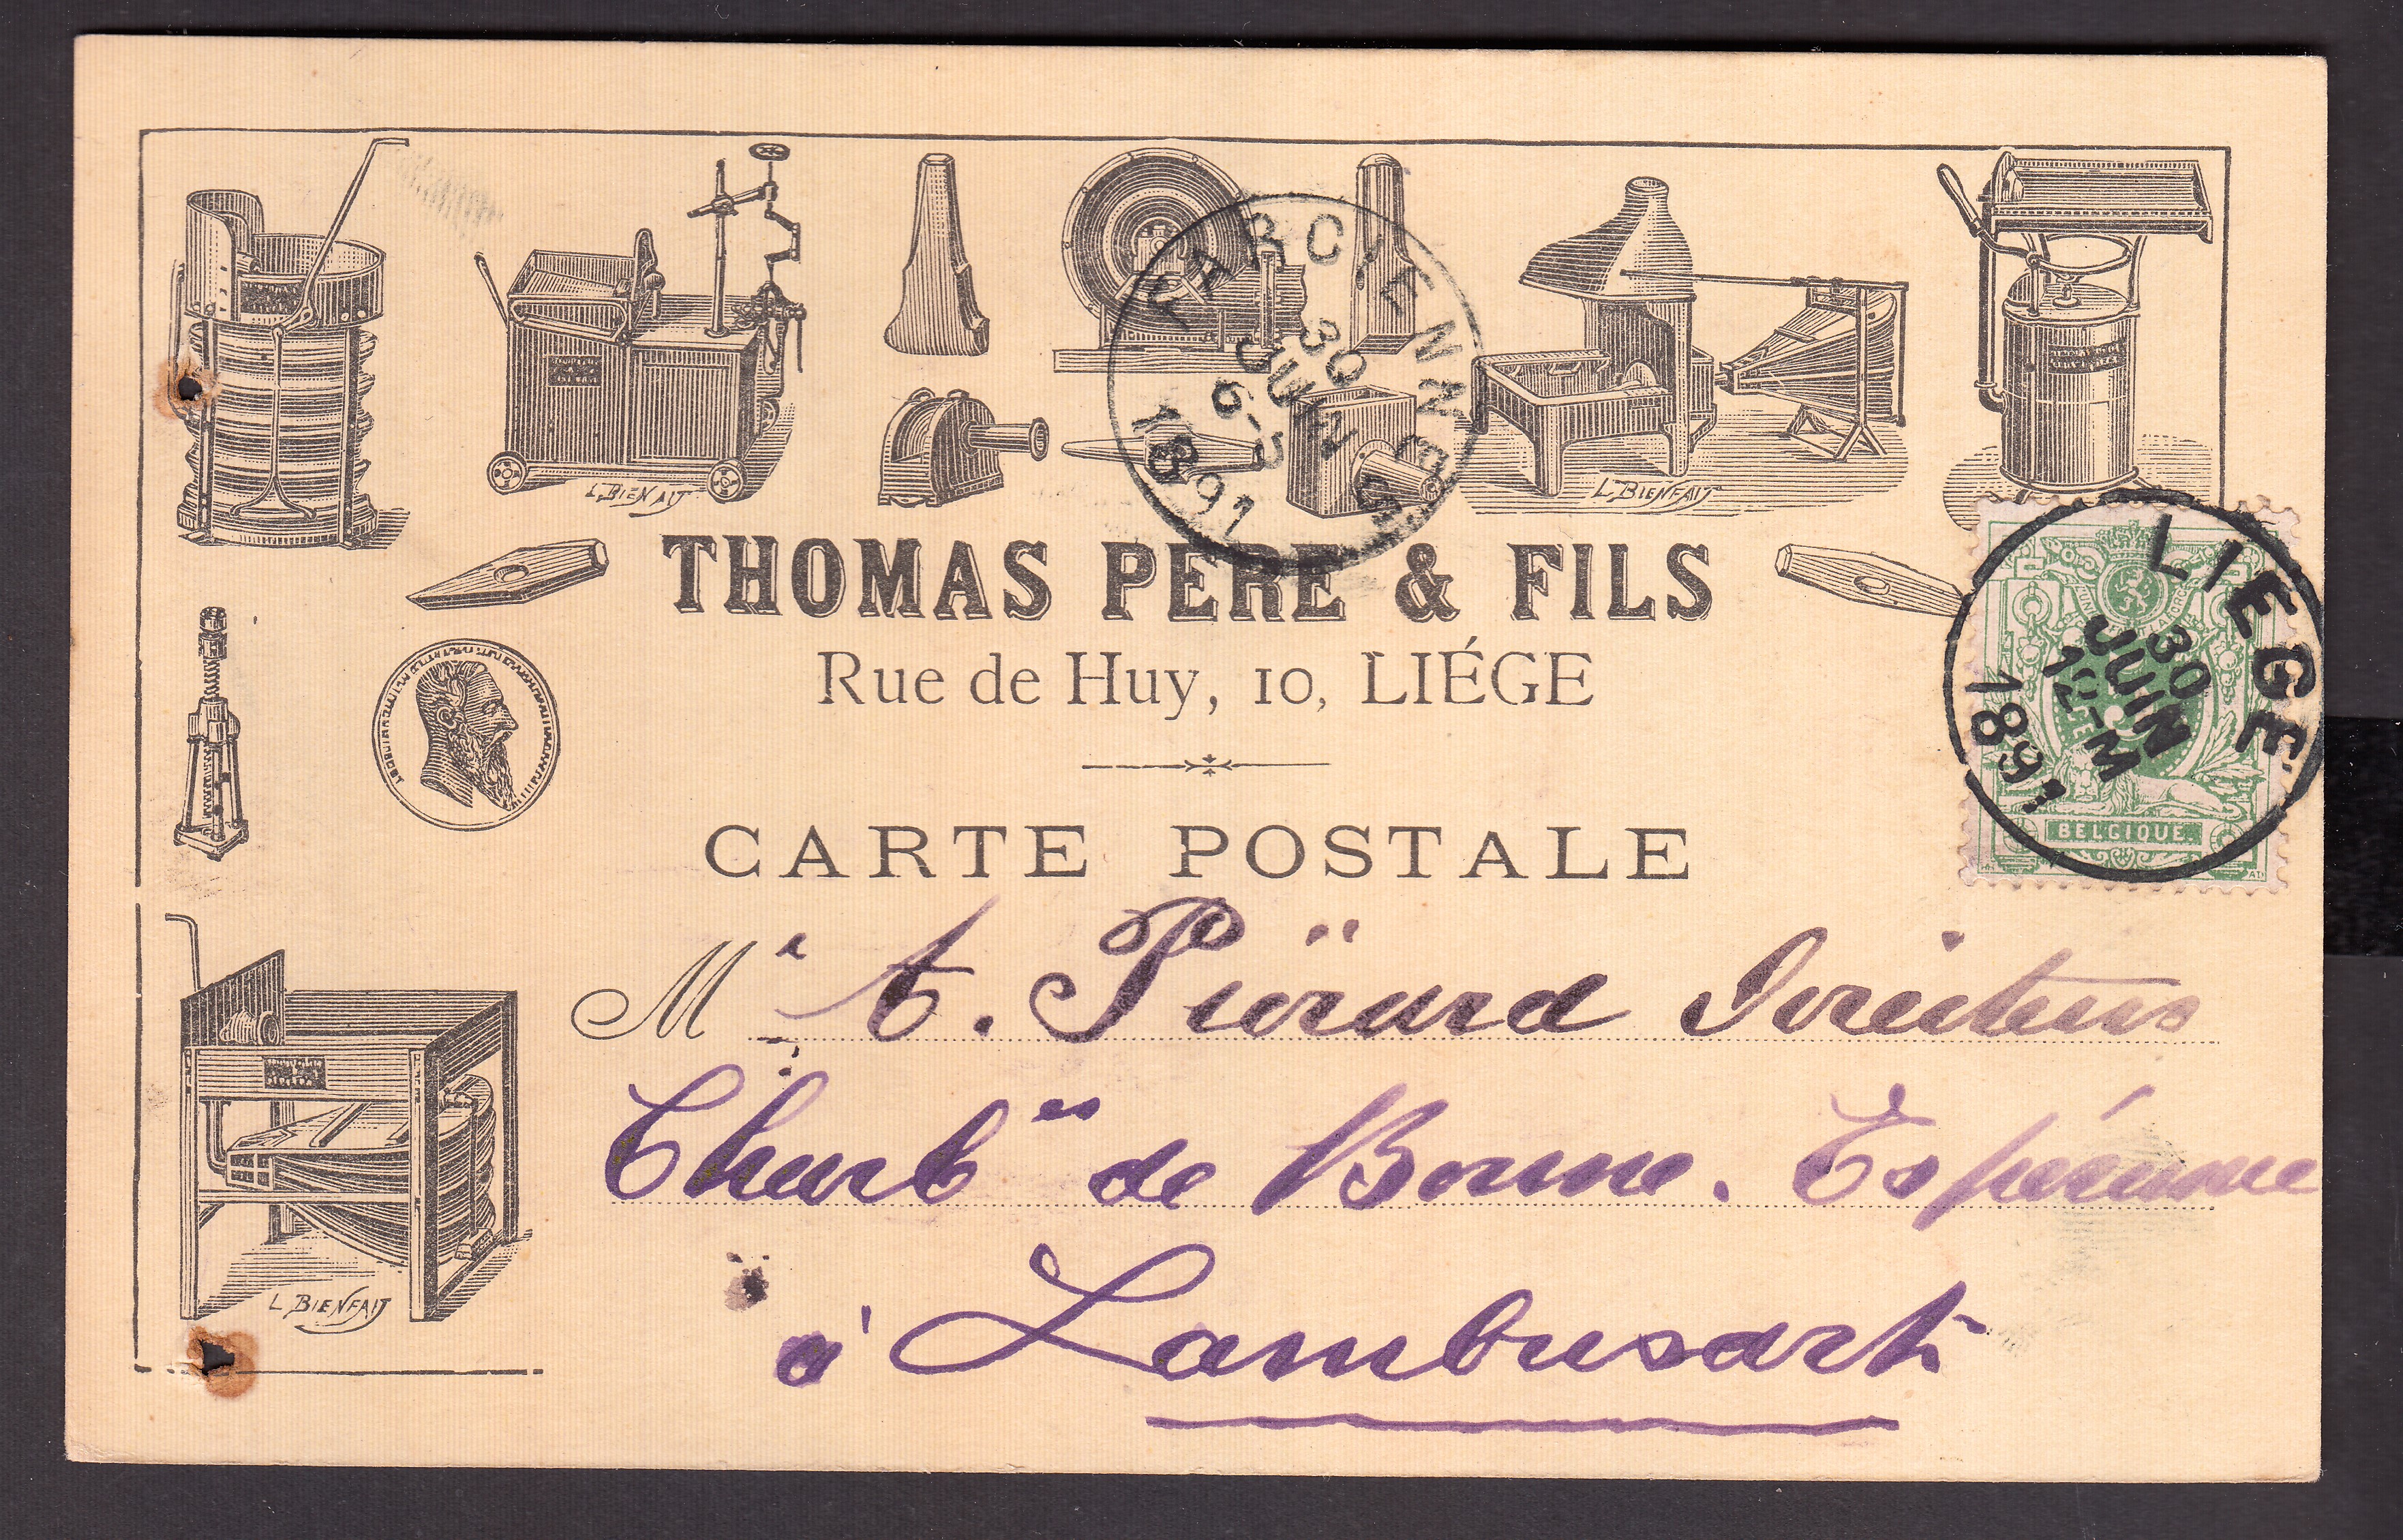 FARCIENNES
30
JUIN
6-5
1891
L. BIENFAIT
L. BIENFAIT
THOMAS PÈRE & FILS
Rue de Huy, 10, LIÉGE
LIEGE
30
JUIN
12-M
1891
BELGIQUE
CARTE POSTALE
Mr A. Piérard Directeur
Charb.es de Bonne. Espérance
à Lambusart
L BIENFAIT